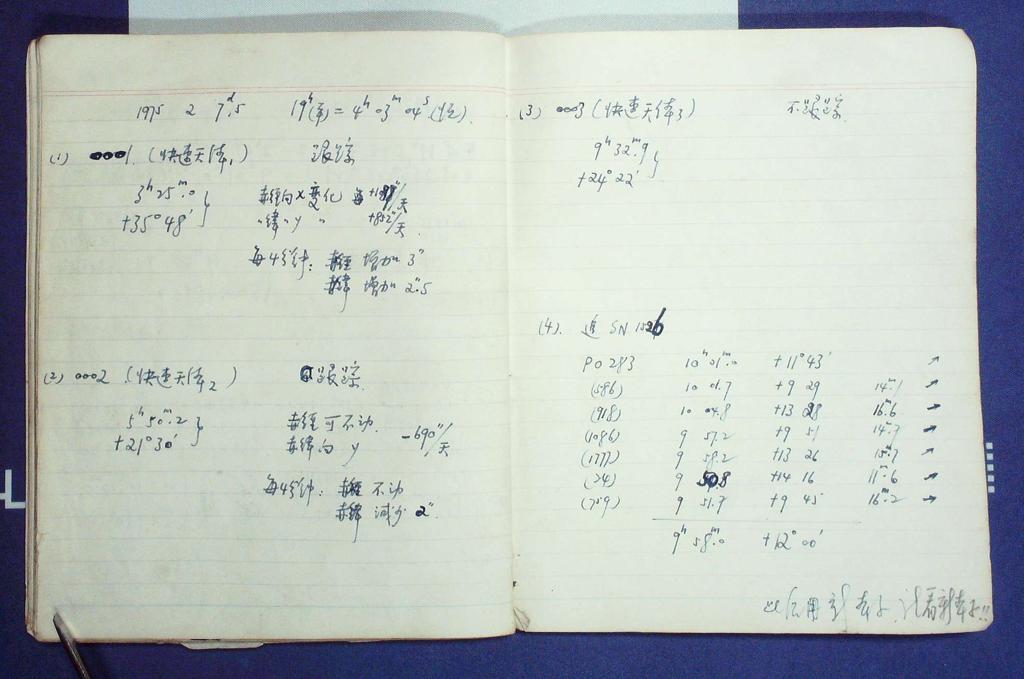 1975 2 7ᵈ.5 19ʰ(京) = 4ʰ03ᵐ04ˢ(恒).
(1) 0001 (快速天体₁) 跟踪
3ʰ25ᵐ.0
+35°48′
赤經向x变化 每 /天
〃緯〃y 〃 +852″/天
每4分钟: 赤經 增加 3″
赤緯 增加 2″.5
(2) 0002 (快速天体₂) 跟踪
5ʰ50ᵐ.2
+21°30′
赤經可不动.
赤緯向 y −690″/天
每4分钟: 赤經 不动
赤緯 減少 2″
(3) 0003 (快速天体₃) 不跟踪
9ʰ32ᵐ.9
+24°22′
(4). 追 SN 1526
PO 283 10ʰ01ᵐ.0 +11°43′ ↗
(586) 10 01.7 +9 29 14ᵐ.1 →
(918) 10 04.8 +13 28 16ᵐ.6 →
(1086) 9 57.2 +9 51 14ᵐ.7 ↗
(1777) 9 58.2 +13 26 15ᵐ.7 ↗
(24) 9 50.8 +14 16 11ᵐ.6 ↗
(759) 9 51.7 +9 45 16ᵐ.2 →
9ʰ58ᵐ.0 +12°00′
此后用新本子, 请看新本子!!